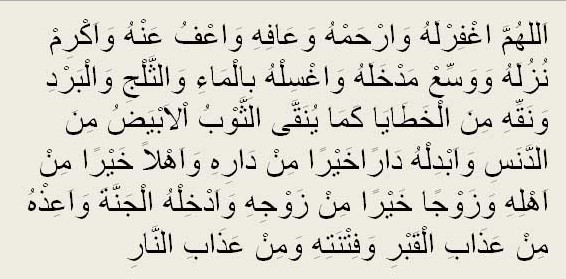 اَللهُمَّ اغْفِرْلَهُ وَارْحَمْهُ وَعَافِهِ وَاعْفُ عَنْهُ وَاَكْرِمْ
نُزُلَهُ وَوَسِّعْ مَدْخَلَهُ وَاغْسِلْهُ بِالْمَاءِ وَالثَّلْجِ وَالْبَرْدِ
وَنَقِّهِ مِنَ الْخَطَايَا كَمَا يُنَقَّى الثَّوْبُ اْلاَبْيَضُ مِنَ
الدَّنَسِ وَاَبْدِلْهُ دَارًاخَيْرًا مِنْ دَارِهِ وَاَهْلاً خَيْرًا مِنْ
اَهْلِهِ وَزَوْجًا خَيْرًا مِنْ زَوْجِهِ وَاَدْخِلْهُ الْجَنَّةَ وَاَعِذْهُ
مِنْ عَذَابِ الْقَبْرِ وَفِتْنَتِهِ وَمِنْ عَذَابِ النَّارِ